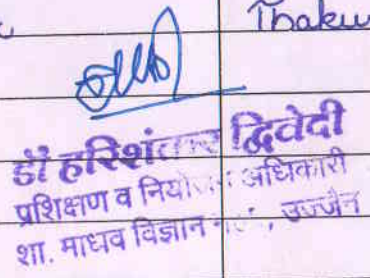 Thaku
डॉ हरिशंकर द्विवेदी
प्रशिक्षण व नियोजन अधिकारी
शा. माधव विज्ञान उज्जैन